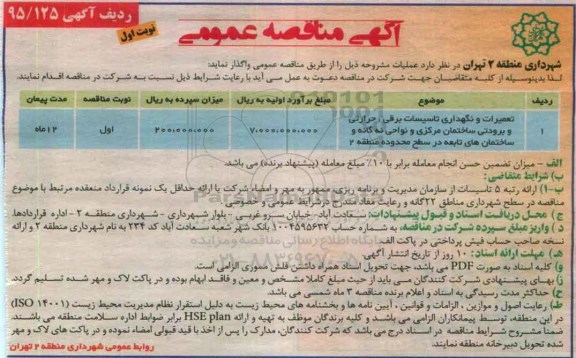 ردیف آگهی ۹۵/۱۲۵
آگهی مناقصه عمومی
نوبت اول
شهرداری منطقه ۲ تهران در نظر دارد عملیات مشروحه ذیل را از طریق مناقصه عمومی واگذار نماید:
لذا بدینوسیله از کلیه متقاضیان جهت شرکت در مناقصه دعوت به عمل می آید با رعایت شرایط ذیل نسبت به شرکت در مناقصه اقدام نمایند.
ردیف موضوع مبلغ برآورد اولیه به ریال میزان سپرده به ریال نوبت مناقصه مدت پیمان
۱ تعمیرات و نگهداری تاسیسات برقی، حرارتی و برودتی ساختمان مرکزی و نواحی نه گانه و ساختمان های تابعه در سطح محدوده منطقه ۲ ۷.۰۰۰.۰۰۰.۰۰۰ ۲۰۰.۰۰۰.۰۰۰ اول ۱۲ ماه
الف - میزان تضمین حسن انجام معامله برابر با ۱۰٪ مبلغ معامله (پیشنهاد برنده) می باشد.
ب) شرایط متقاضی:
ب-۱) ارائه رتبه ۵ تاسیسات از سازمان مدیریت و برنامه ریزی، ممهور به مهر و امضاء شرکت یا ارائه حداقل یک نمونه قرارداد منعقده مرتبط با موضوع
مناقصه در سطح شهرداری مناطق ۲۲گانه و رعایت مفاد مندرج در شرایط عمومی و خصوصی.
ج) محل دریافت اسناد و قبول پیشنهادات: سعادت آباد- خیابان سرو غربی - بلوار شهرداری - شهرداری منطقه ۲ - اداره قراردادها.
د) واریز مبلغ سپرده شرکت در مناقصه، به شماره حساب ۱۰۰۴۵۹۵۶۳۲ بانک شهر شعبه سعادت آباد کد ۲۳۴ به نام شهرداری منطقه ۲ و ارائه
نسخه صاحب حساب فیش پرداختی در پاکت الف.
هـ) مهلت ارائه اسناد: ۱۰ روز از تاریخ انتشار آگهی.
و) کلیه اسناد به صورت PDF می باشد، جهت تحویل اسناد همراه داشتن فلش ضروری الزامی است.
ز) بهای پیشنهادی شرکت کنندگان می باید از حیث مبلغ کاملا مشخص و معین و فاقد ابهام بوده و در پاکت لاک و مهر شده تسلیم گردد.
ح) حداکثر مدت رسیدگی به اسناد و اعلام برنده مناقصه ۳ ماه شمسی می باشد.
ط) رعایت اصول و موازین، الزامات و قوانین، آیین نامه ها و بخشنامه های محیط زیست به دلیل استقرار نظام مدیریت محیط زیست (ISO ۱۴۰۰۱)
در این منطقه، توسط پیمانکاران الزامی می باشد و کلیه برندگان موظف به تهیه و ارائه HSE plan برابر ضوابط اداره سلامت منطقه می باشند.
ضمنا مشروح شرایط مناقصه در اسناد درج می باشد که شرکت کنندگان، مدارک را پس از اخذ با قید قبولی امضاء نموده و در پاکت های لاک و مهر
شده تحویل دبیرخانه منطقه نمایند.
روابط عمومی شهرداری منطقه ۲ تهران